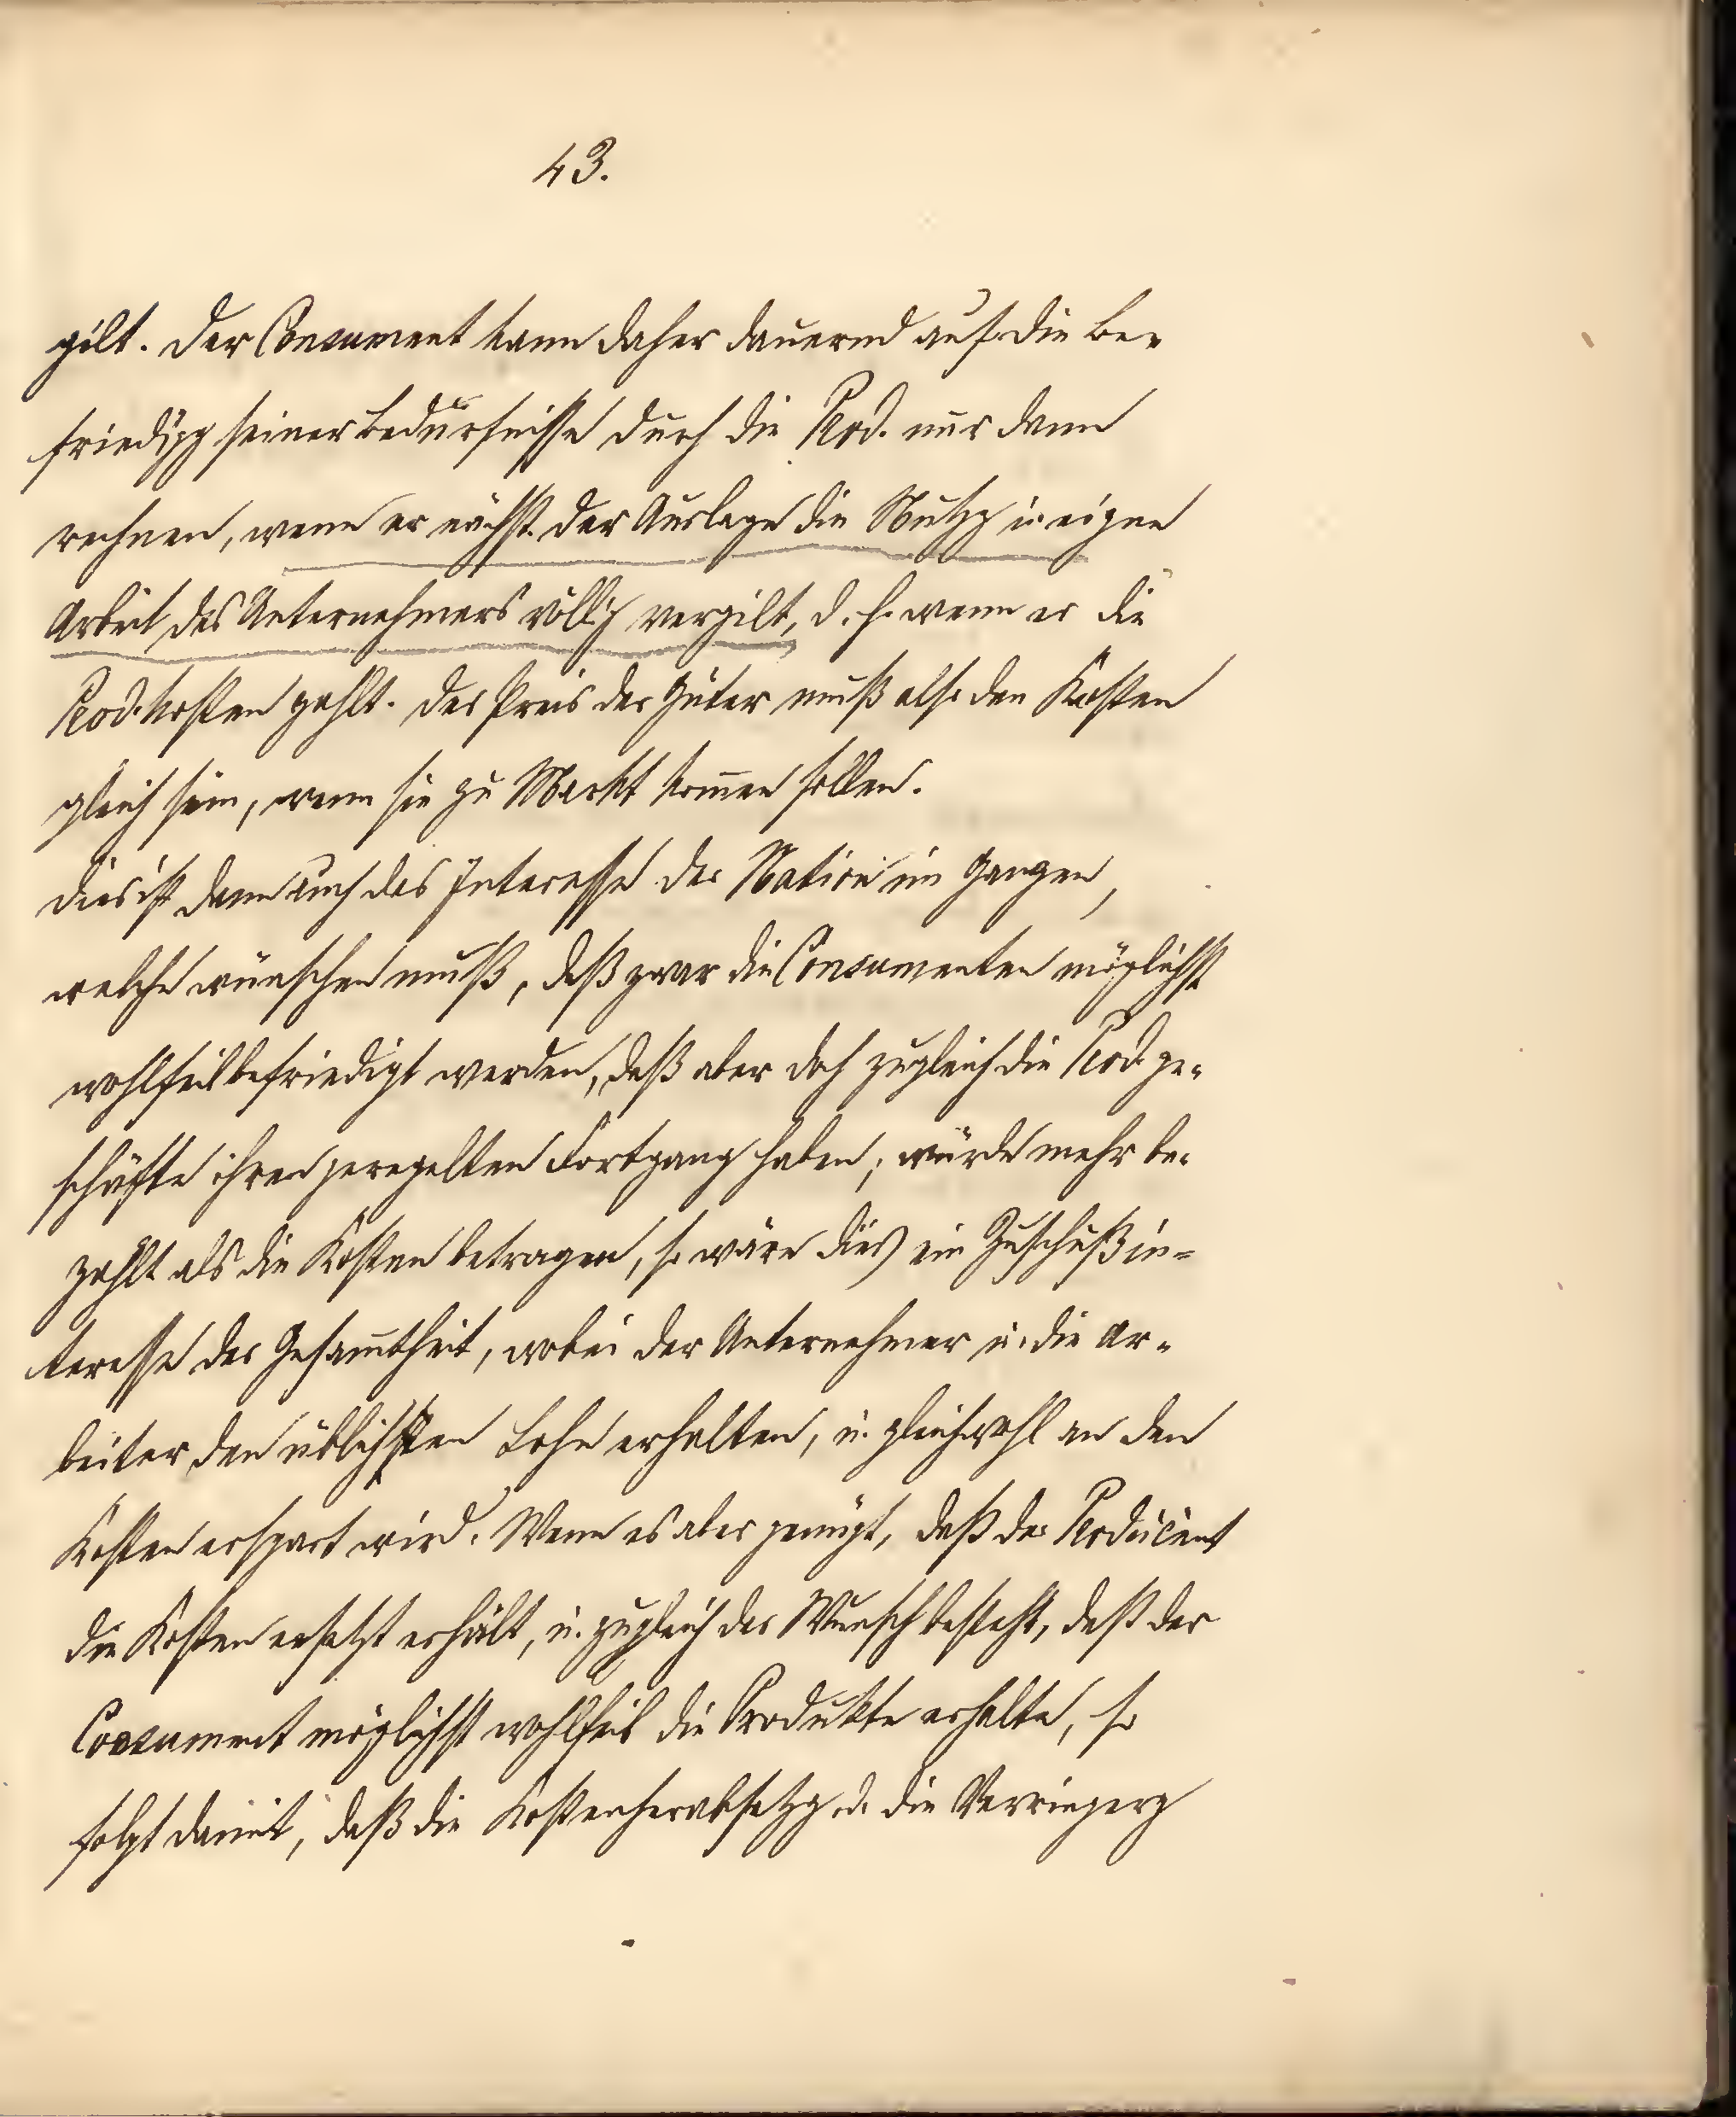 43.
gilt. Der Consument kann daher dauernd auf die Be-
friedigg seiner Bedürfnisse durch die Prod. nur dann
rechnen, wenn er nächst der Auslage die Nutzg u. eigne
Arbeit des Unternehmers völlig vergilt, d. h. wenn er die
Prod.kosten zahlt. Der Preis der Güter muß also den Kosten
gleich sein, wenn sie zu Markt kom̄en sollen.
Dies ist dann auch das Interesse der Nation im Ganzen,
welche wünschen muß, daß zwar die Consumenten möglichst
wohlfeil befriedigt werden, daß aber doch zugleich die Prod. ge-
schäfte ihren geregelten Fortgang haben; würde mehr be-
zahlt als die Kosten betragen, so wäre dies ein Zuschuß in-
teresse der Gesam̄theit, wobei der Unternehmer u. die Ar-
beiter den üblichsten Lohn erhalten, u. gleichwohl an den
Kosten erspart wird. Wenn es aber genügt, daß der Producent
die Kosten ersetzt erhält, u. zugleich der Wunsch besteht, daß der
Consument möglichst wohlfeil die Produkte erhalte, so
folgt damit, daß die Kostenherabsetzg d. die Verringerg